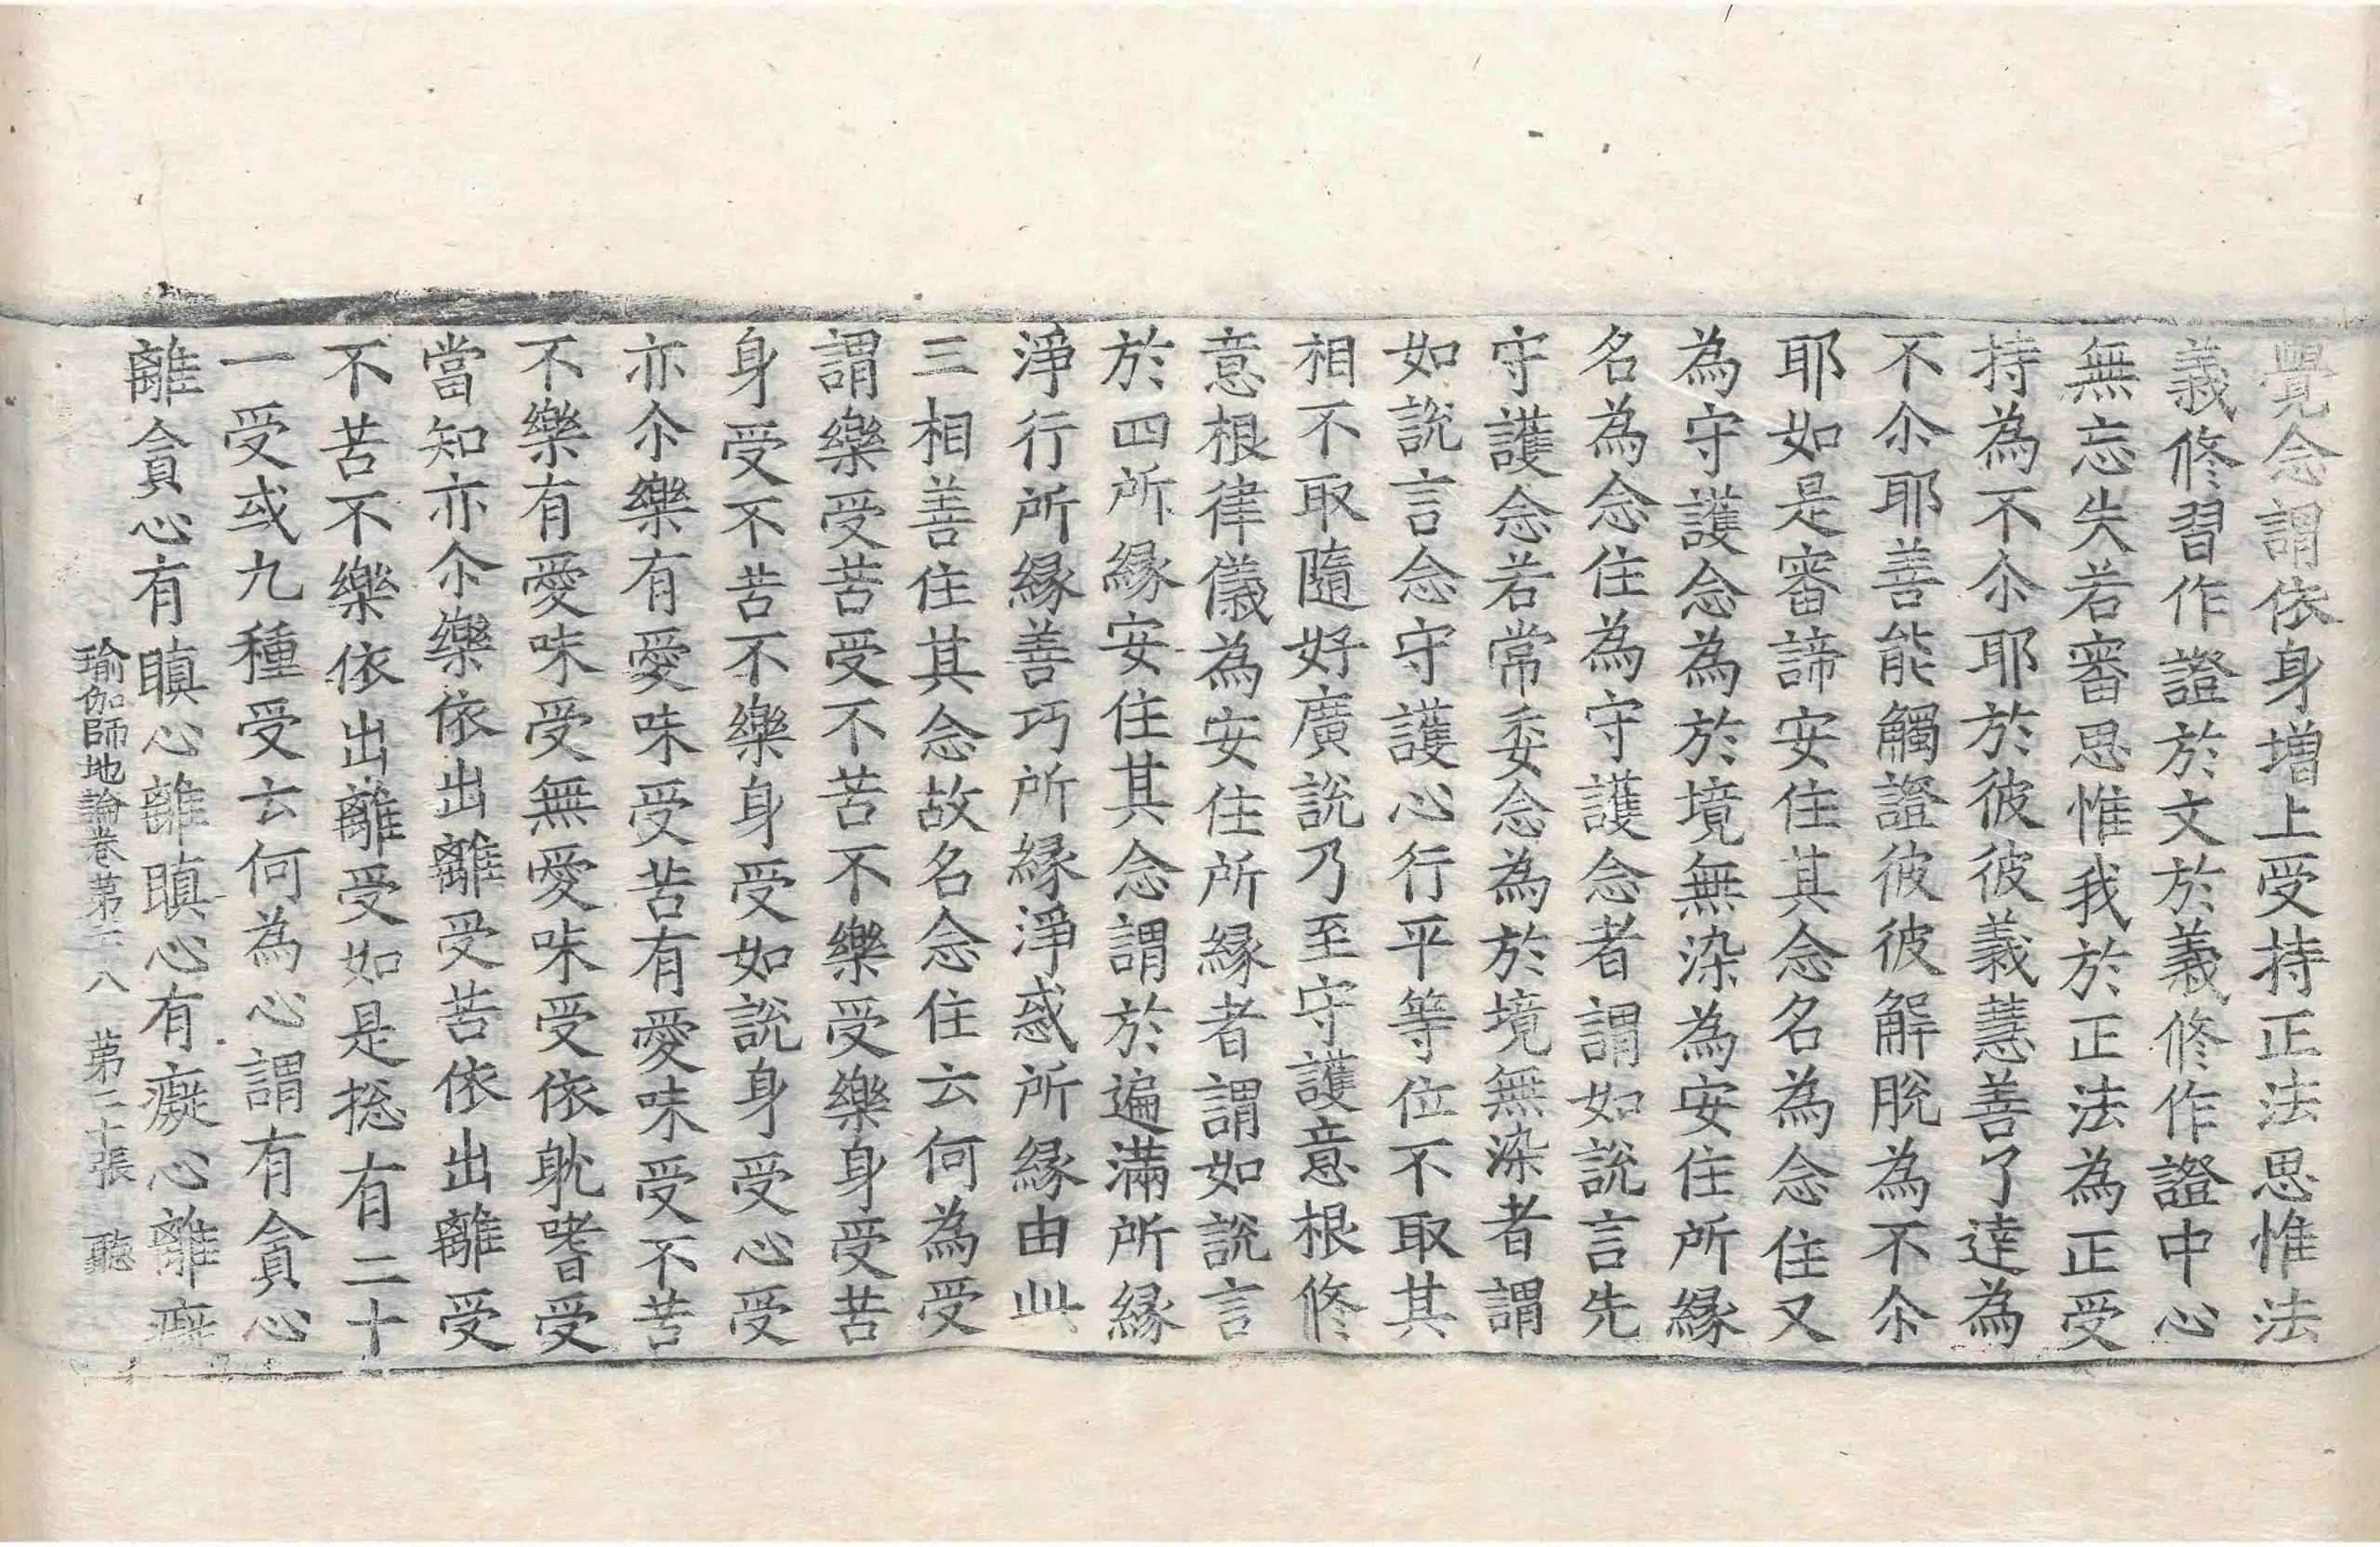 覺念謂依身増上受持正法思惟法
義修習作證於文於義修作證中心
無忘失若審思惟我於正法為正受
持為不尒耶於彼彼義慧善了達為
不尒耶善能觸證彼彼解脫為不尒
耶如是審諦安住其念名為念住又
為守護念為於境無染為安住所縁
名為念住為守護念者謂如說言先
守護念若常委念為於境無染者謂
如說言念守護心行平等位不取其
相不取隨好廣說乃至守護意根修
意根律儀為安住所縁者謂如說言
於四所縁安住其念謂於遍滿所縁
淨行所縁善巧所縁淨惑所縁由此
三相善住其念故名念住云何為受
謂樂受苦受不苦不樂受樂身受苦
身受不苦不樂身受如說身受心受
亦尒樂有愛味受苦有愛味受不苦
不樂有愛味受無愛味受依耽嗜受
當知亦尒樂依出離受苦依出離受
不苦不樂依出離受如是揔有二十
一受或九種受云何為心謂有貪心
離貪心有瞋心離瞋心有癡心離癡
瑜伽師地論卷第二八 第二十張 聽